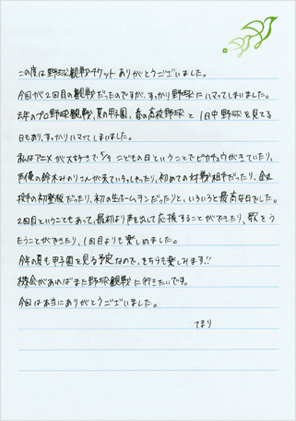 この度は野球観戦チケットありがとうございました。
今回が2回目の観戦だったのですが、すっかり野球にハマってしまいました。
去年のプロ野球観戦、夏の甲子園、春の高校野球と1日中野球を見てる
日もあり、すっかりハマってしまいました。
私はアニメが大好きで5/5こどもの日ということでピカチュウがきていたり、
声優の鈴木みのりさんが来ていらっしゃったり、初めての対戦相手だったり、
投手の初登板だったり、初の生ホームランだったりと、いろいろと最高な日でした。
2回目ということもあって、最初より声を出して応援することができたり、歌をう
たうことができたり、1回目よりも楽しめました。
今年の夏も甲子園を見る予定なので、そちらも楽しみです!!
機会があればまた野球観戦に行きたいです。
今回は本当にありがとうございました。
てまり